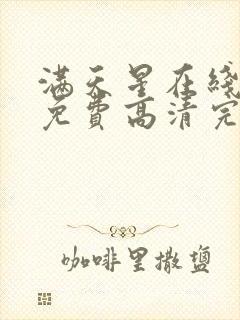 满天星在线
免费高清完
咖啡里撒盐